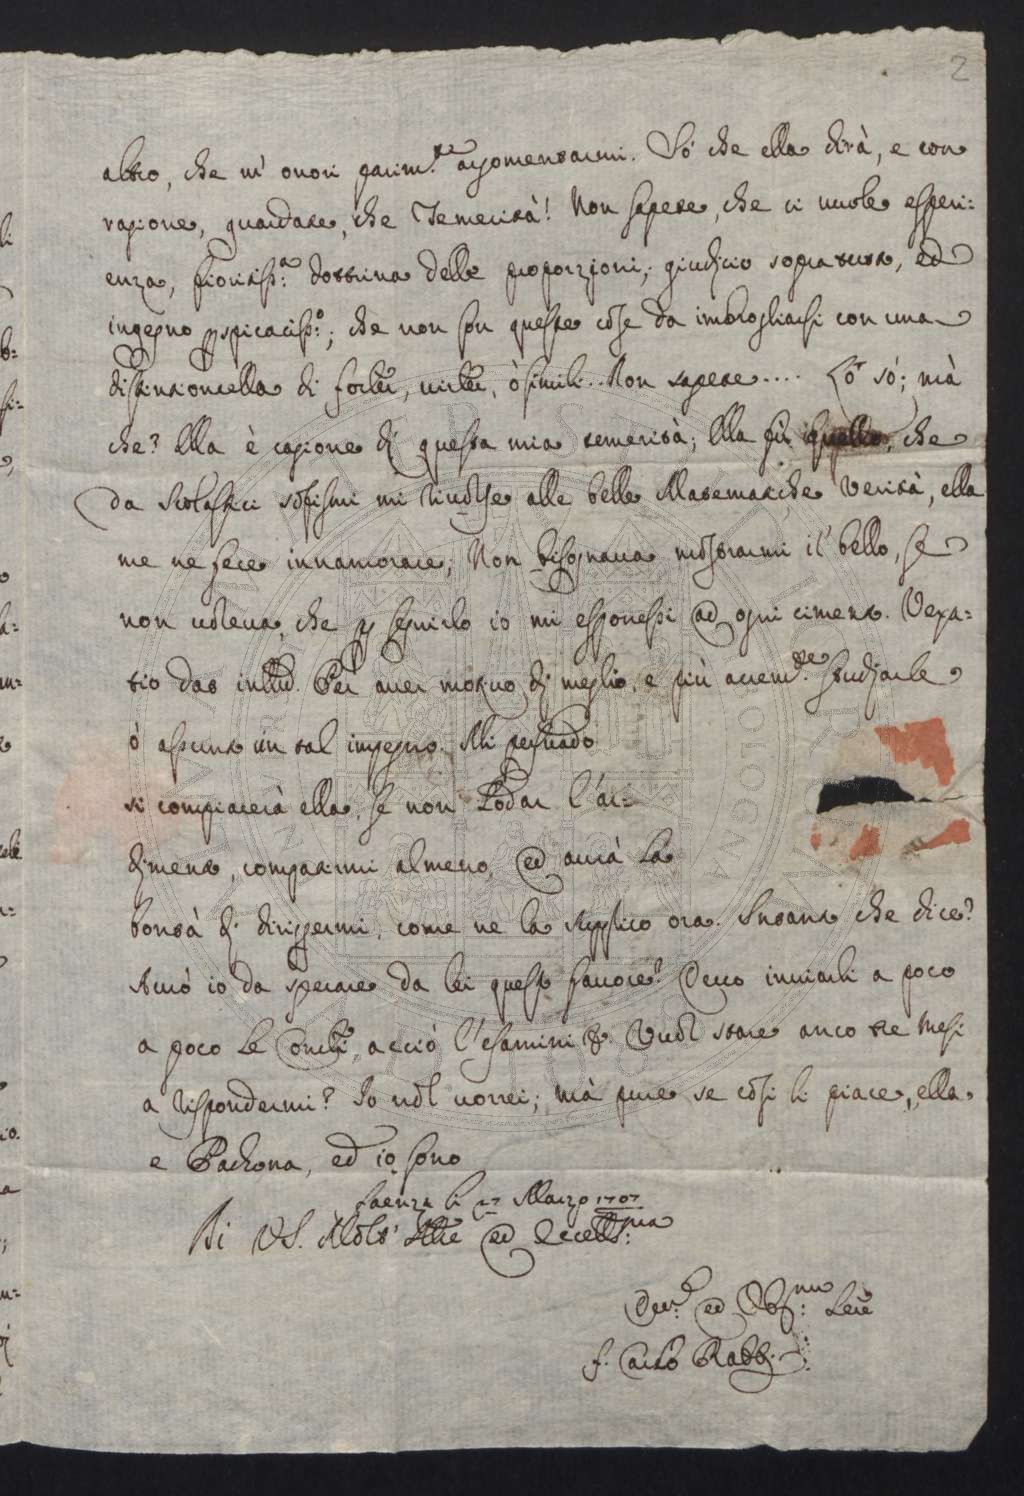 2
altro, che m'onori parim.te argomentarmi. Sò che ella dirà, e con
ragione, guardate, che Temerità! Non sapete, che ci vuole esperi=
enza, fioritiss.a dottrina delle proporzioni, giudicio sopratutto, ed
ingegno pspicaciss.o; che non son queste cose da imbrogliarsi con una
distintioncella di for.r, virt.r, ò simili.. Non sapete.... Lò sò; mà
che? Ella è cagione di questa mia temerità; Ella fù quella, che
da scolastici sofismi mi rivolse alle belle Matematiche Verità, ella
me ne fece innamorare; Non bisognava mostrarmi il bello, se
non voleva, che p seguirlo io mi esponessi ad ogni cimento. Vexa=
tio dat intllũ. Per aver motivo di meglio, e più attem.te studiarle
ò assunto un tal impegno. Mi persuado
si compiacerà ella, se non Lodar l'ar=
dimento, compatirmi almeno, ed avrà La
bontà di dirigermi, come ne la supplico ora. Intanto che dice?
Avrò io da sperare da lei questo favore? Devo inviarli a poco
a poco Le Con.i, acciò l'esamini &. Vuol stare anco tre Mesi
a rispondermi? Io nol vorrei; mà pure se così li piace, ella
e Padrona, ed io sono
Faenza li 27 Marzo 1707
Di V.S. Molto Ill.re ed Eccell.ma
Dev.o ed Obb.mo Ser.e
f. Carlo Rabbi